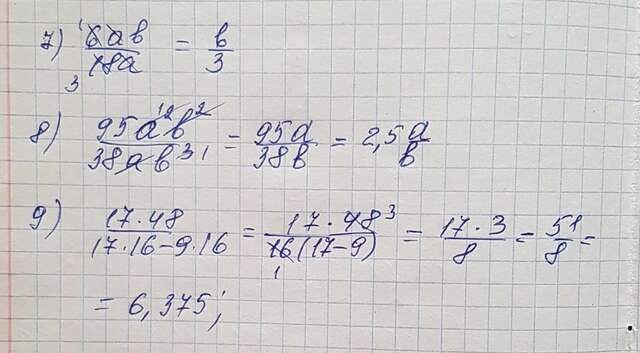 7) 6ab/18a = b/3
8) 95a²b²/38ab³ = 95a/38b = 2,5 a/b
9) 17·48/17·16-9·16 = 17·48/16(17-9) = 17·3/8 = 51/8 =
= 6,375;